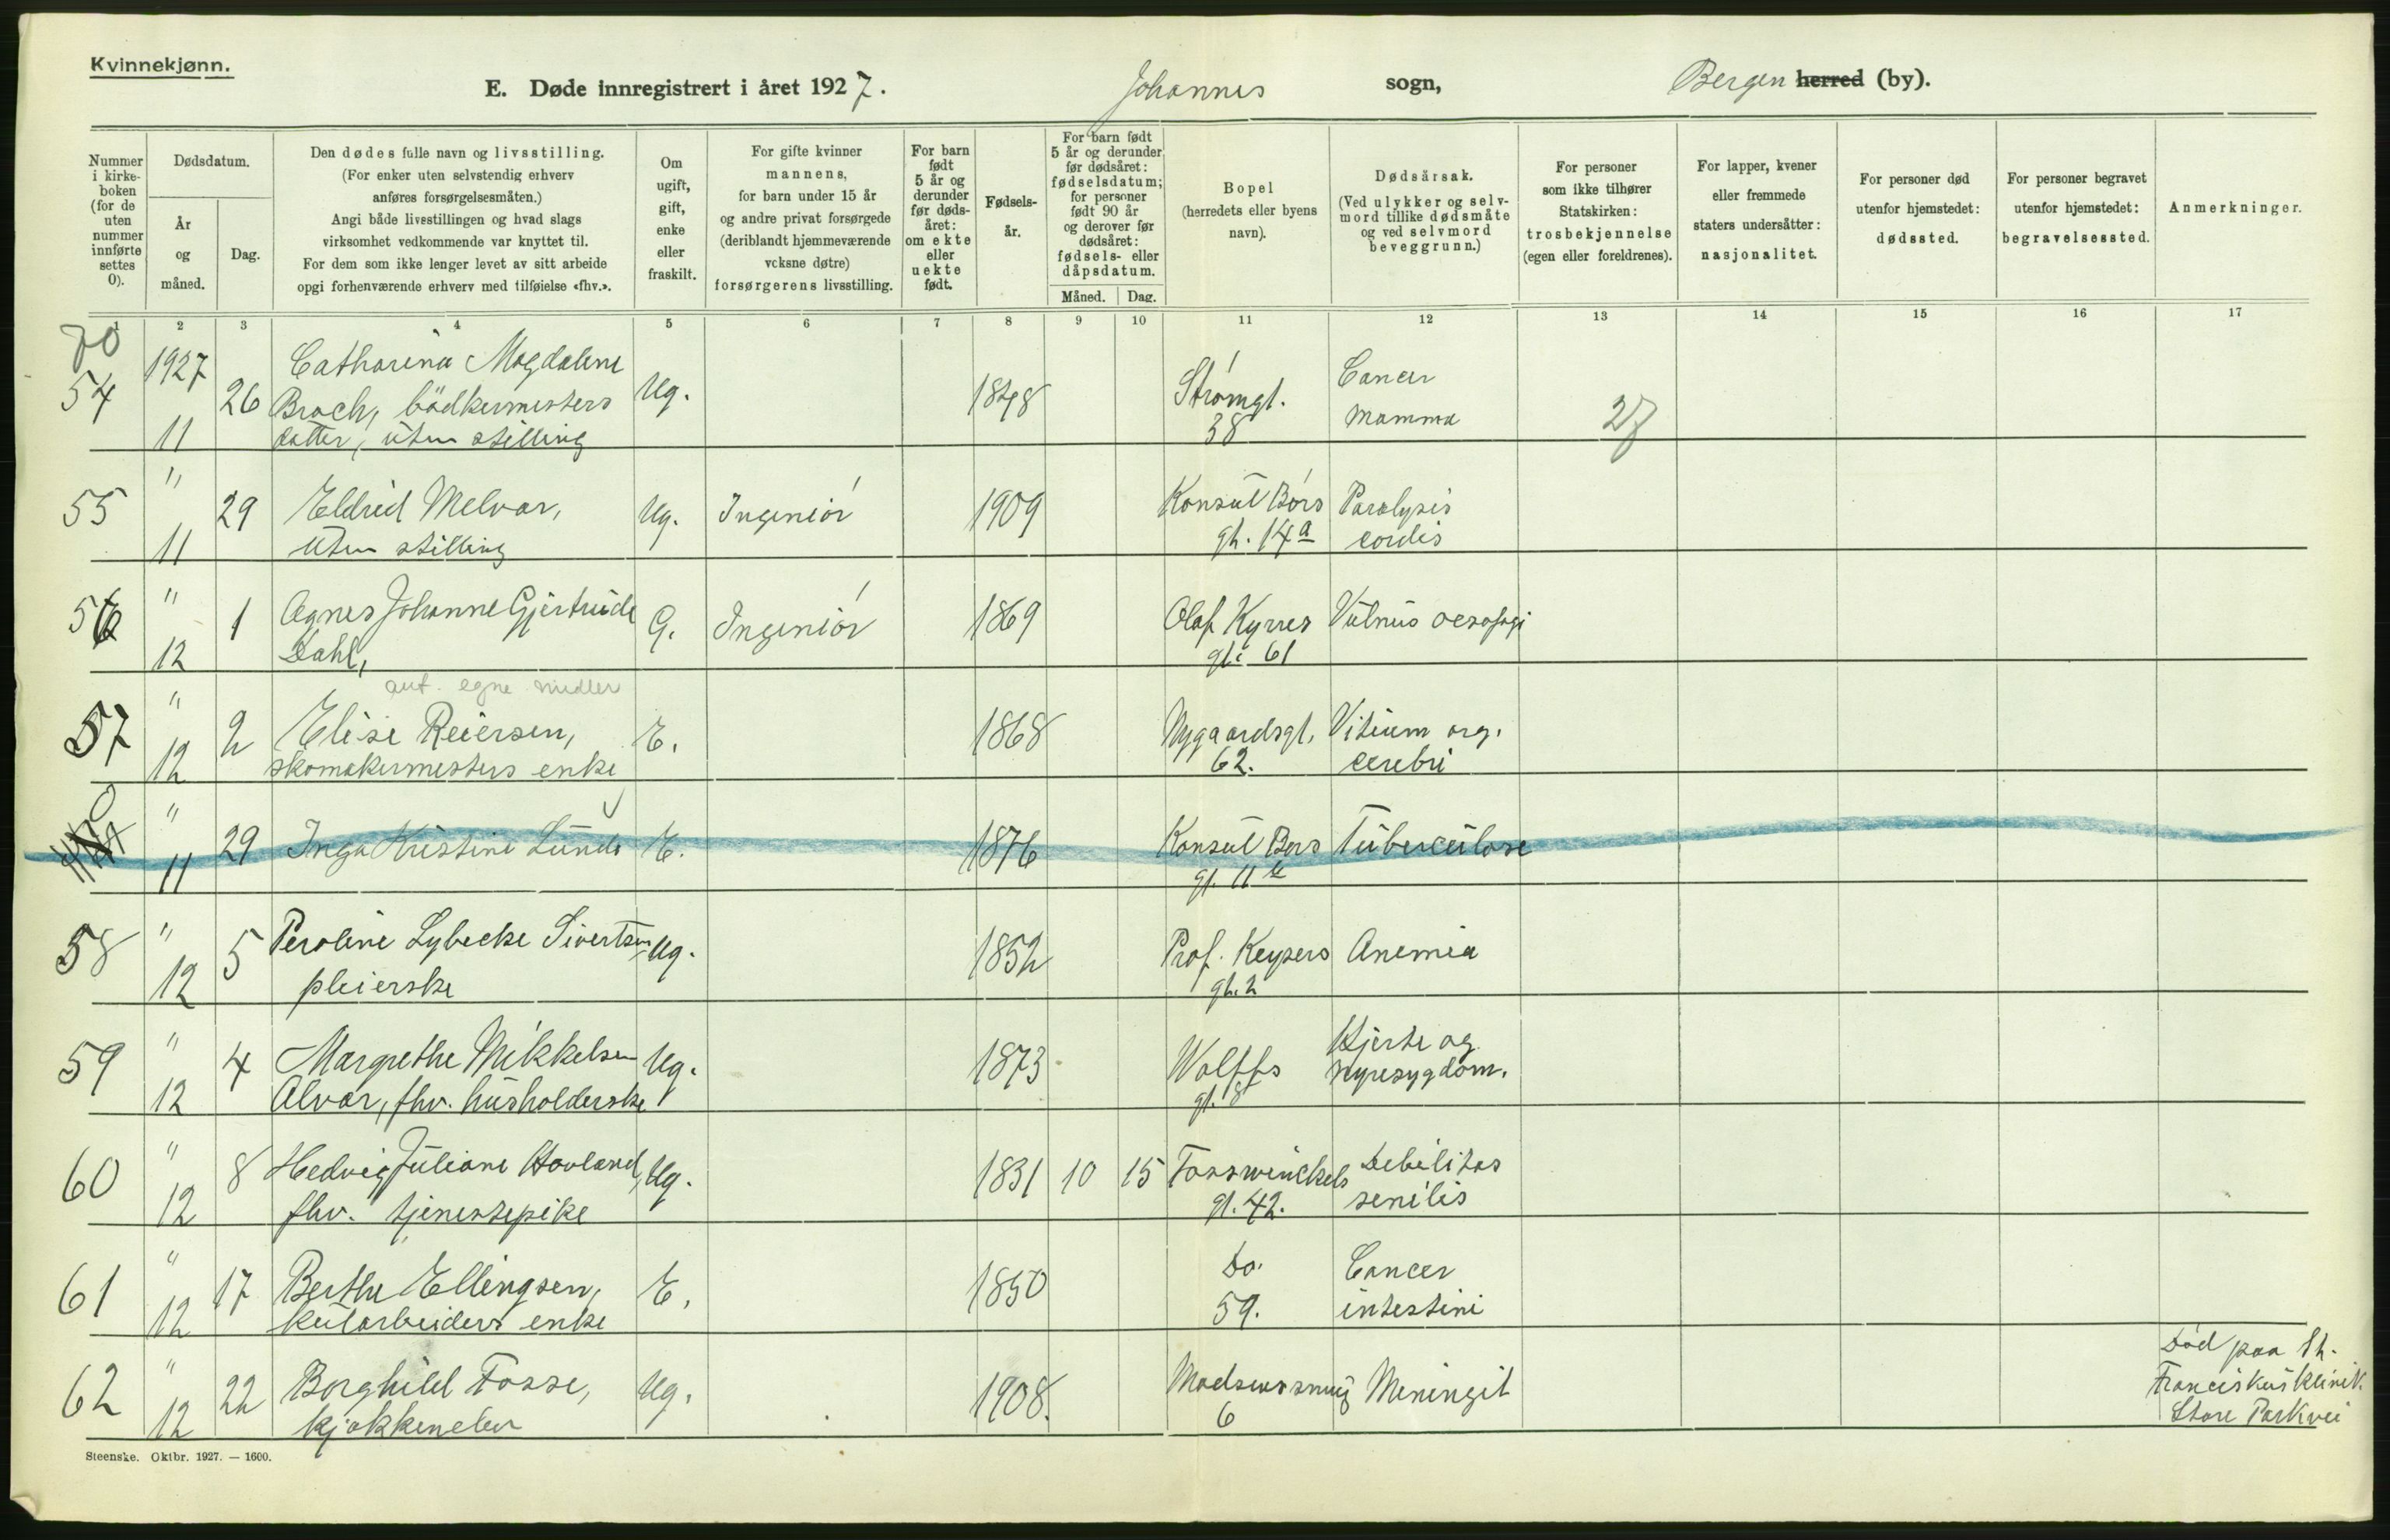 Kvinnekjønn.
E. Døde innregistrert i året 1927. Johannes sogn, Bergen herred (by).
Nummer i kirkeboken (for de uten nummer innførte settes 0).
Dødsdatum.
År og måned.
Dag.
Den dødes fulle navn og livsstilling.
(For enker uten selvstendig erhverv anføres forsørgelsesmåten.)
Angi både livsstillingen og hvad slags virksomhet vedkommende var knyttet til.
For dem som ikke lenger levet av sitt arbeide opgi forhenværende erhverv med tilføielse «fhv.».
Om ugift, gift, enke eller fraskilt.
For gifte kvinner mannens, for barn under 15 år og andre privat forsørgede (deriblandt hjemmeværende voksne døtre) forsørgerens livsstilling.
For barn født 5 år og derunder før dødsåret: om ekte eller uekte født.
Fødselsår.
For barn født 5 år og derunder før dødsåret: fødselsdatum; for personer født 90 år og derover før dødsåret: fødsels- eller dåpsdatum.
Måned. Dag.
Bopel (herredets eller byens navn).
Dødsårsak.
(Ved ulykker og selvmord tillike dødsmåte og ved selvmord beveggrunn.)
For personer som ikke tilhører Statskirken: trosbekjennelse (egen eller foreldrenes).
For lapper, kvener eller fremmede staters undersåtter: nasjonalitet.
For personer død utenfor hjemstedet: dødssted.
For personer begravet utenfor hjemstedet: begravelsessted.
Anmerkninger.
1 2 3 4 5 6 7 8 9 10 11 12 13 14 15 16 17
70
54 1927 11 26 Catharina Magdalene Broch, bödkermesters datter, uten stilling Ug. 1848 Strømgt. 38 Cancer mamma 27
55 " 11 29 Eldrid Melvær, uten stilling Ug. Ingeniör 1909 Konsul Børs gt. 14a Paralysis cordis
56 " 12 1 Agnes Johanne Gjertrude Dahl, G. Ingeniör 1869 Olaf Kyrres gt. 61 Vulnus oesofagi
ant. egne midler
57 " 12 2 Elise Reiersen, skomakermesters enke E. 1868 Nygaardsgt. 62. Vitium org. cerebri
0 " 11 29 Inga Kristine Lunde E. 1876 Konsul Børs gt. 11 Tuberculose
58 " 12 5 Peroline Lybecke Sivertsen, pleierske Ug. 1852 Prof. Keysers gt. 2 Anemia
59 " 12 4 Margrethe Mikkelsen Alvær, fhv. husholderske Ug. 1873 Wolffs gt. 8 Hjerte og nyresygdom.
60 " 12 8 Hedvig Juliane Hovland, fhv. tjenestepike Ug. 1831 10 15 Fosswinckels gt. 42. Debilitas senilis
61 " 12 17 Berthe Ellingsen, kularbeiders enke E. 1850 Do. 59. Cancer intestini
62 " 12 22 Borghild Fosse, kjøkkenelev Ug. 1908. Madsens smug 6 Meningit Död paa St. Franciskus klinik. Store Parkvei
Steenske. Oktbr. 1927. — 1600.